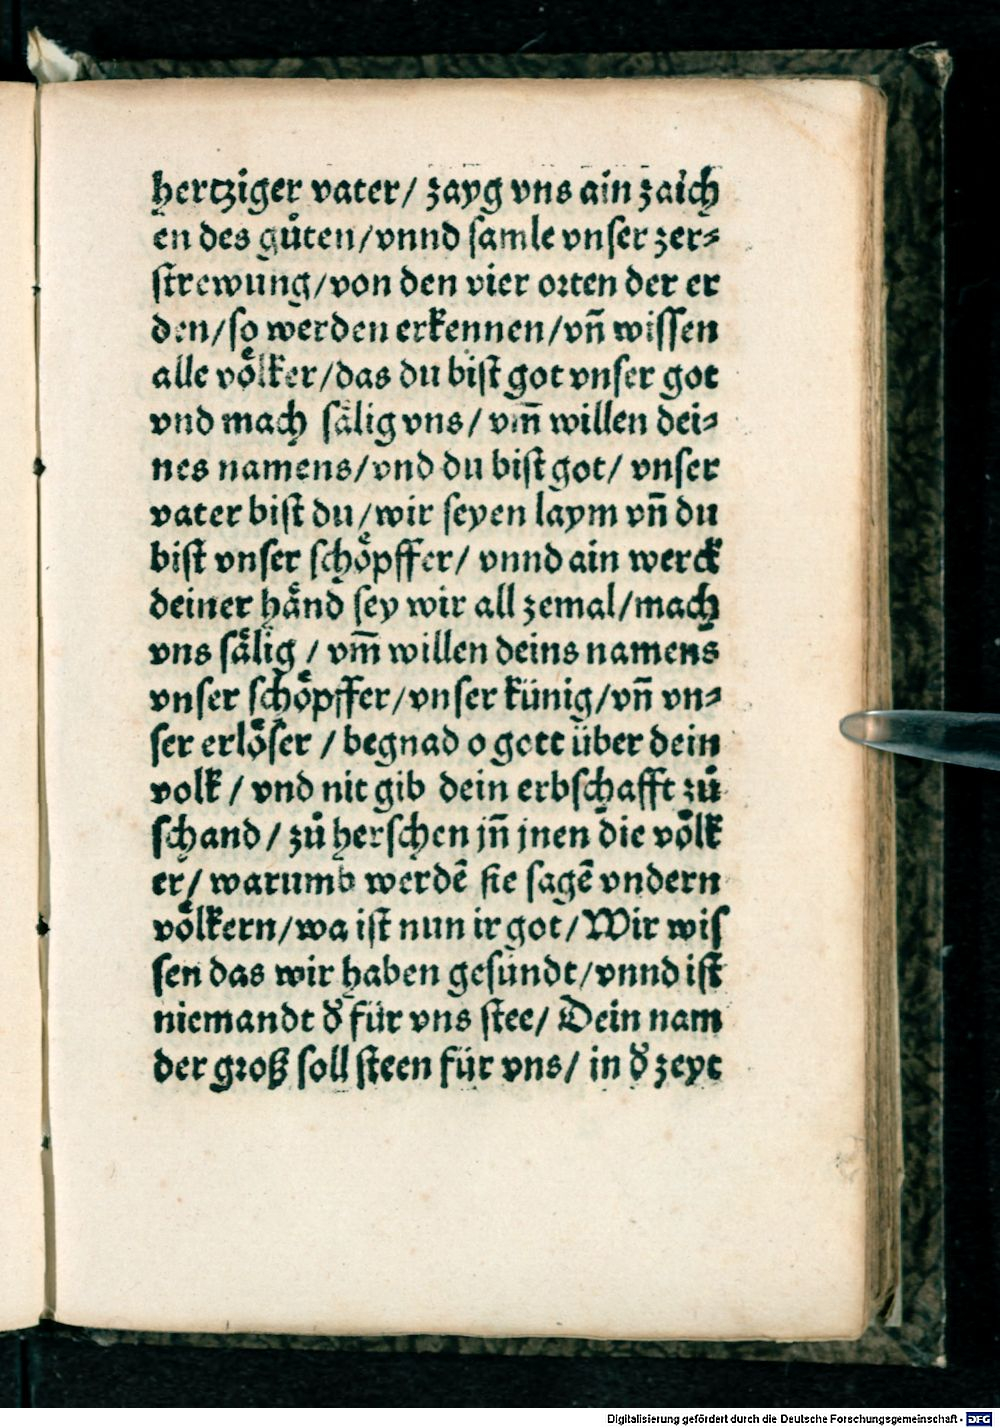 hertziger vater/ zayg vns ain zaich
en des guͦten/vnnd samle vnser zer⸗
strewung/von den vier orten der er
den/so werden erkennen/vñ wissen
alle voͤlker/das du bist got vnser got
vnd mach saͤlig vns/ vm̃ willen dei⸗
nes namens/vnd du bist got/ vnser
vater bist du/wir seyen laym vñ du
bist vnser schoͤpffer/ vnnd ain werck
deiner haͤnd sey wir all zemal/mach
vns saͤlig / vm̃ willen deins namens
vnser schoͤpffer/vnser künig/vñ vn⸗
ser erloͤser / begnad o gott über dein
volk / vnd nit gib dein erbschafft zuͦ
schand/ zuͦ herschen jñ jnen die voͤlk
er/ warumb werdẽ sie sagẽ vndern
voͤlkern/wa ist nun ir got/Wir wis
sen das wir haben gesündt/vnnd ist
niemandt d̕ für vns stee/ Dein nam
der groß soll steen für vns/ in d̕ zeyt
Digitalisierung gefördert durch die Deutsche Forschungsgemeinschaft - DFG